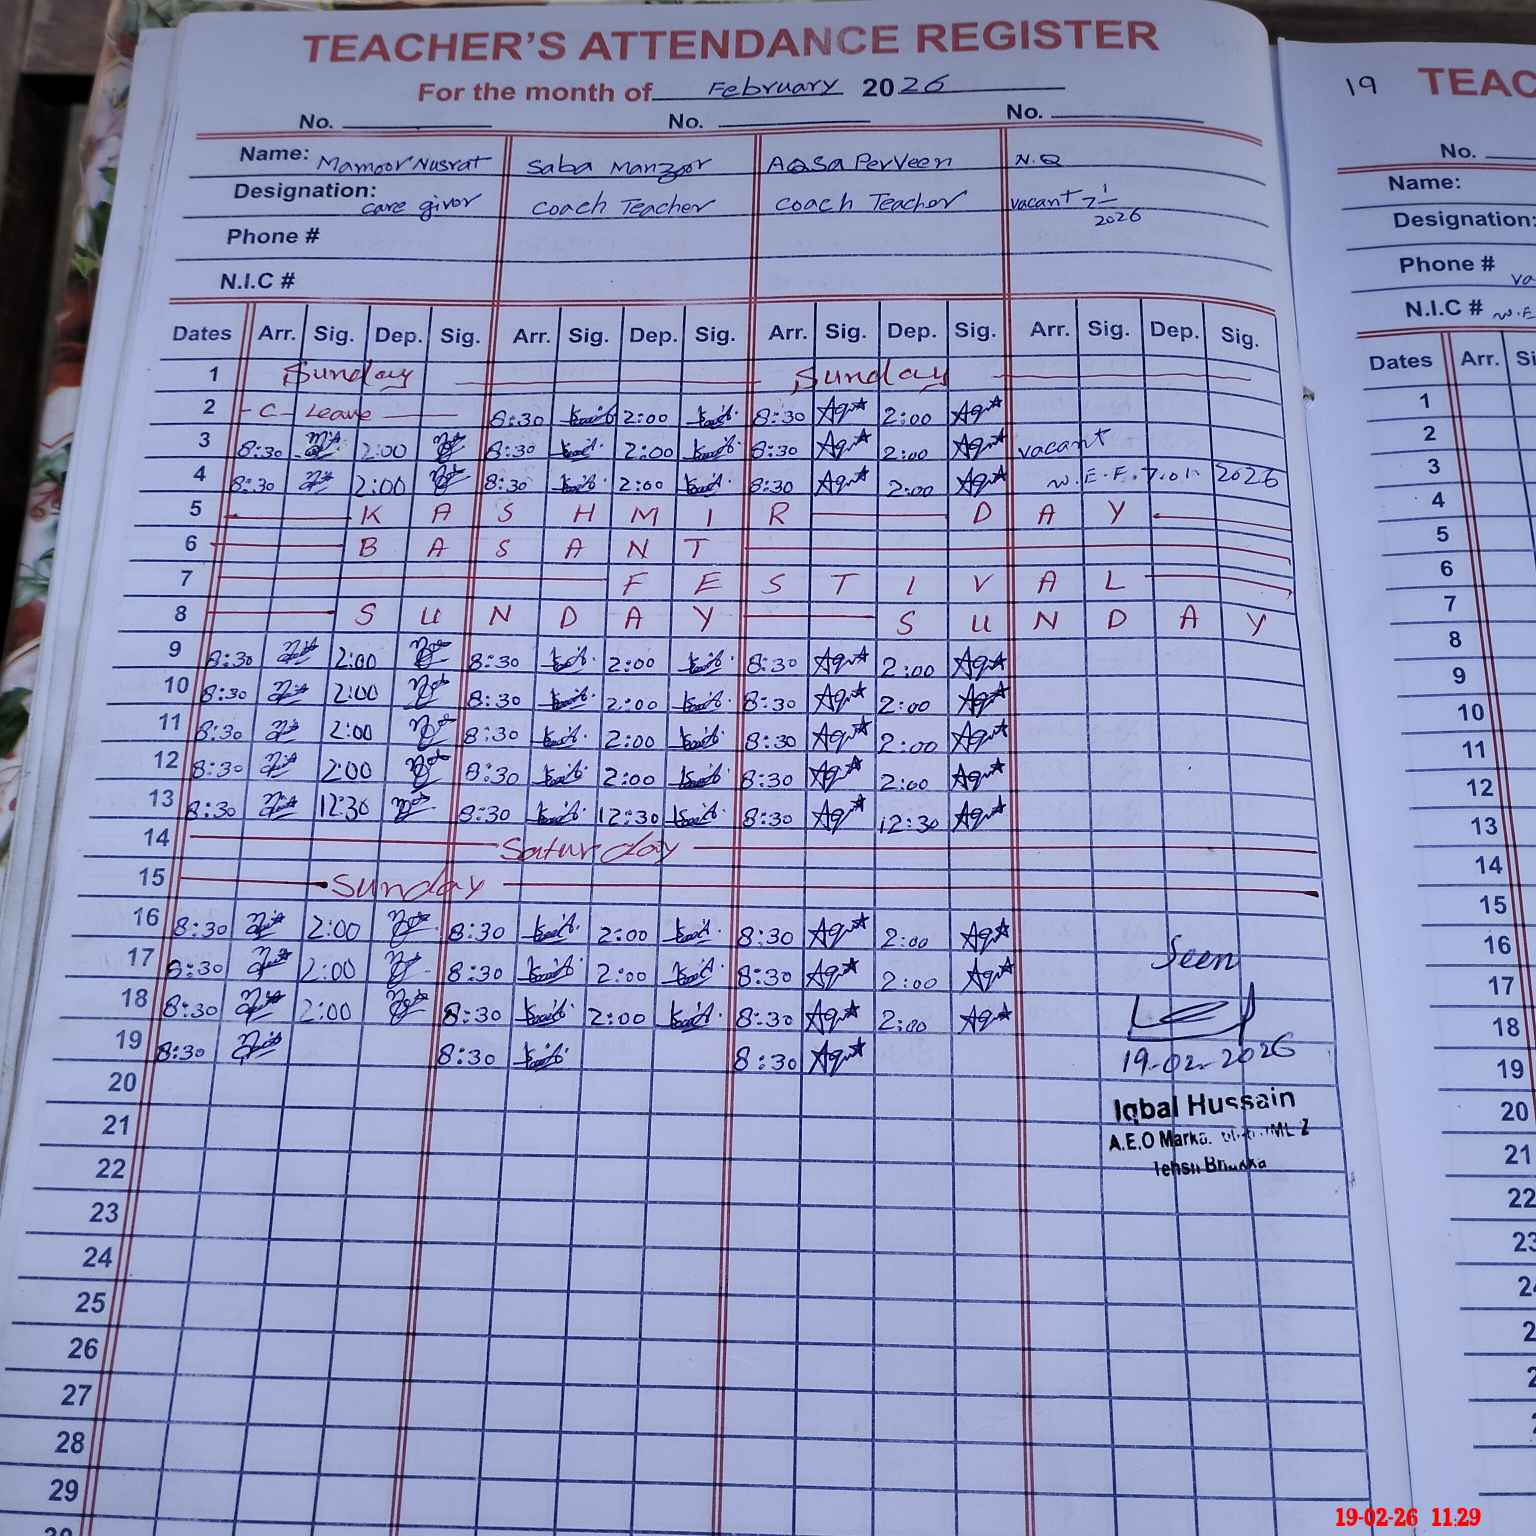 TEACHER'S ATTENDANCE REGISTER
For the month of February 2026
No. No. No.
Name: Mamoor Nusrat Saba Manzoor AQSA PerVeen N.Q
Designation: care givor coach Teacher coach Teacher vacant 7 1/2026
Phone #
N.I.C #
Dates Arr. Sig. Dep. Sig. Arr. Sig. Dep. Sig. Arr. Sig. Dep. Sig. Arr. Sig. Dep. Sig.
1 Sunday Sunday
2 C- Leave 8:30 2:00 8:30 2:00
3 8:30 2:00 8:30 2:00 8:30 2:00 vacant
4 8:30 2:00 8:30 2:00 8:30 2:00 W.E.F.7.01. 2026
5 K A S H M I R D A Y
6 B A S A N T
7 F E S T I V A L
8 S U N D A Y S U N D A Y
9 8:30 2:00 8:30 2:00 8:30 2:00
10 8:30 2:00 8:30 2:00 8:30 2:00
11 8:30 2:00 8:30 2:00 8:30 2:00
12 8:30 2:00 8:30 2:00 8:30 2:00
13 8:30 12:30 8:30 12:30 8:30 12:30
14 Saturday
15 Sunday
16 8:30 2:00 8:30 2:00 8:30 2:00
Seen
17 8:30 2:00 8:30 2:00 8:30 2:00
18 8:30 2:00 8:30 2:00 8:30 2:00
19 8:30 8:30 8:30
19-02-2026
20
Iqbal Hussain
21
A.E.O
22
23
24
25
26
27
28
29
30
19 TEAC
No.
Name:
Designation:
Phone #
N.I.C #
Dates Arr.
1
2
3
4
5
6
7
8
9
10
11
12
13
14
15
16
17
18
19
20
21
22
23
19-02-26 11:29